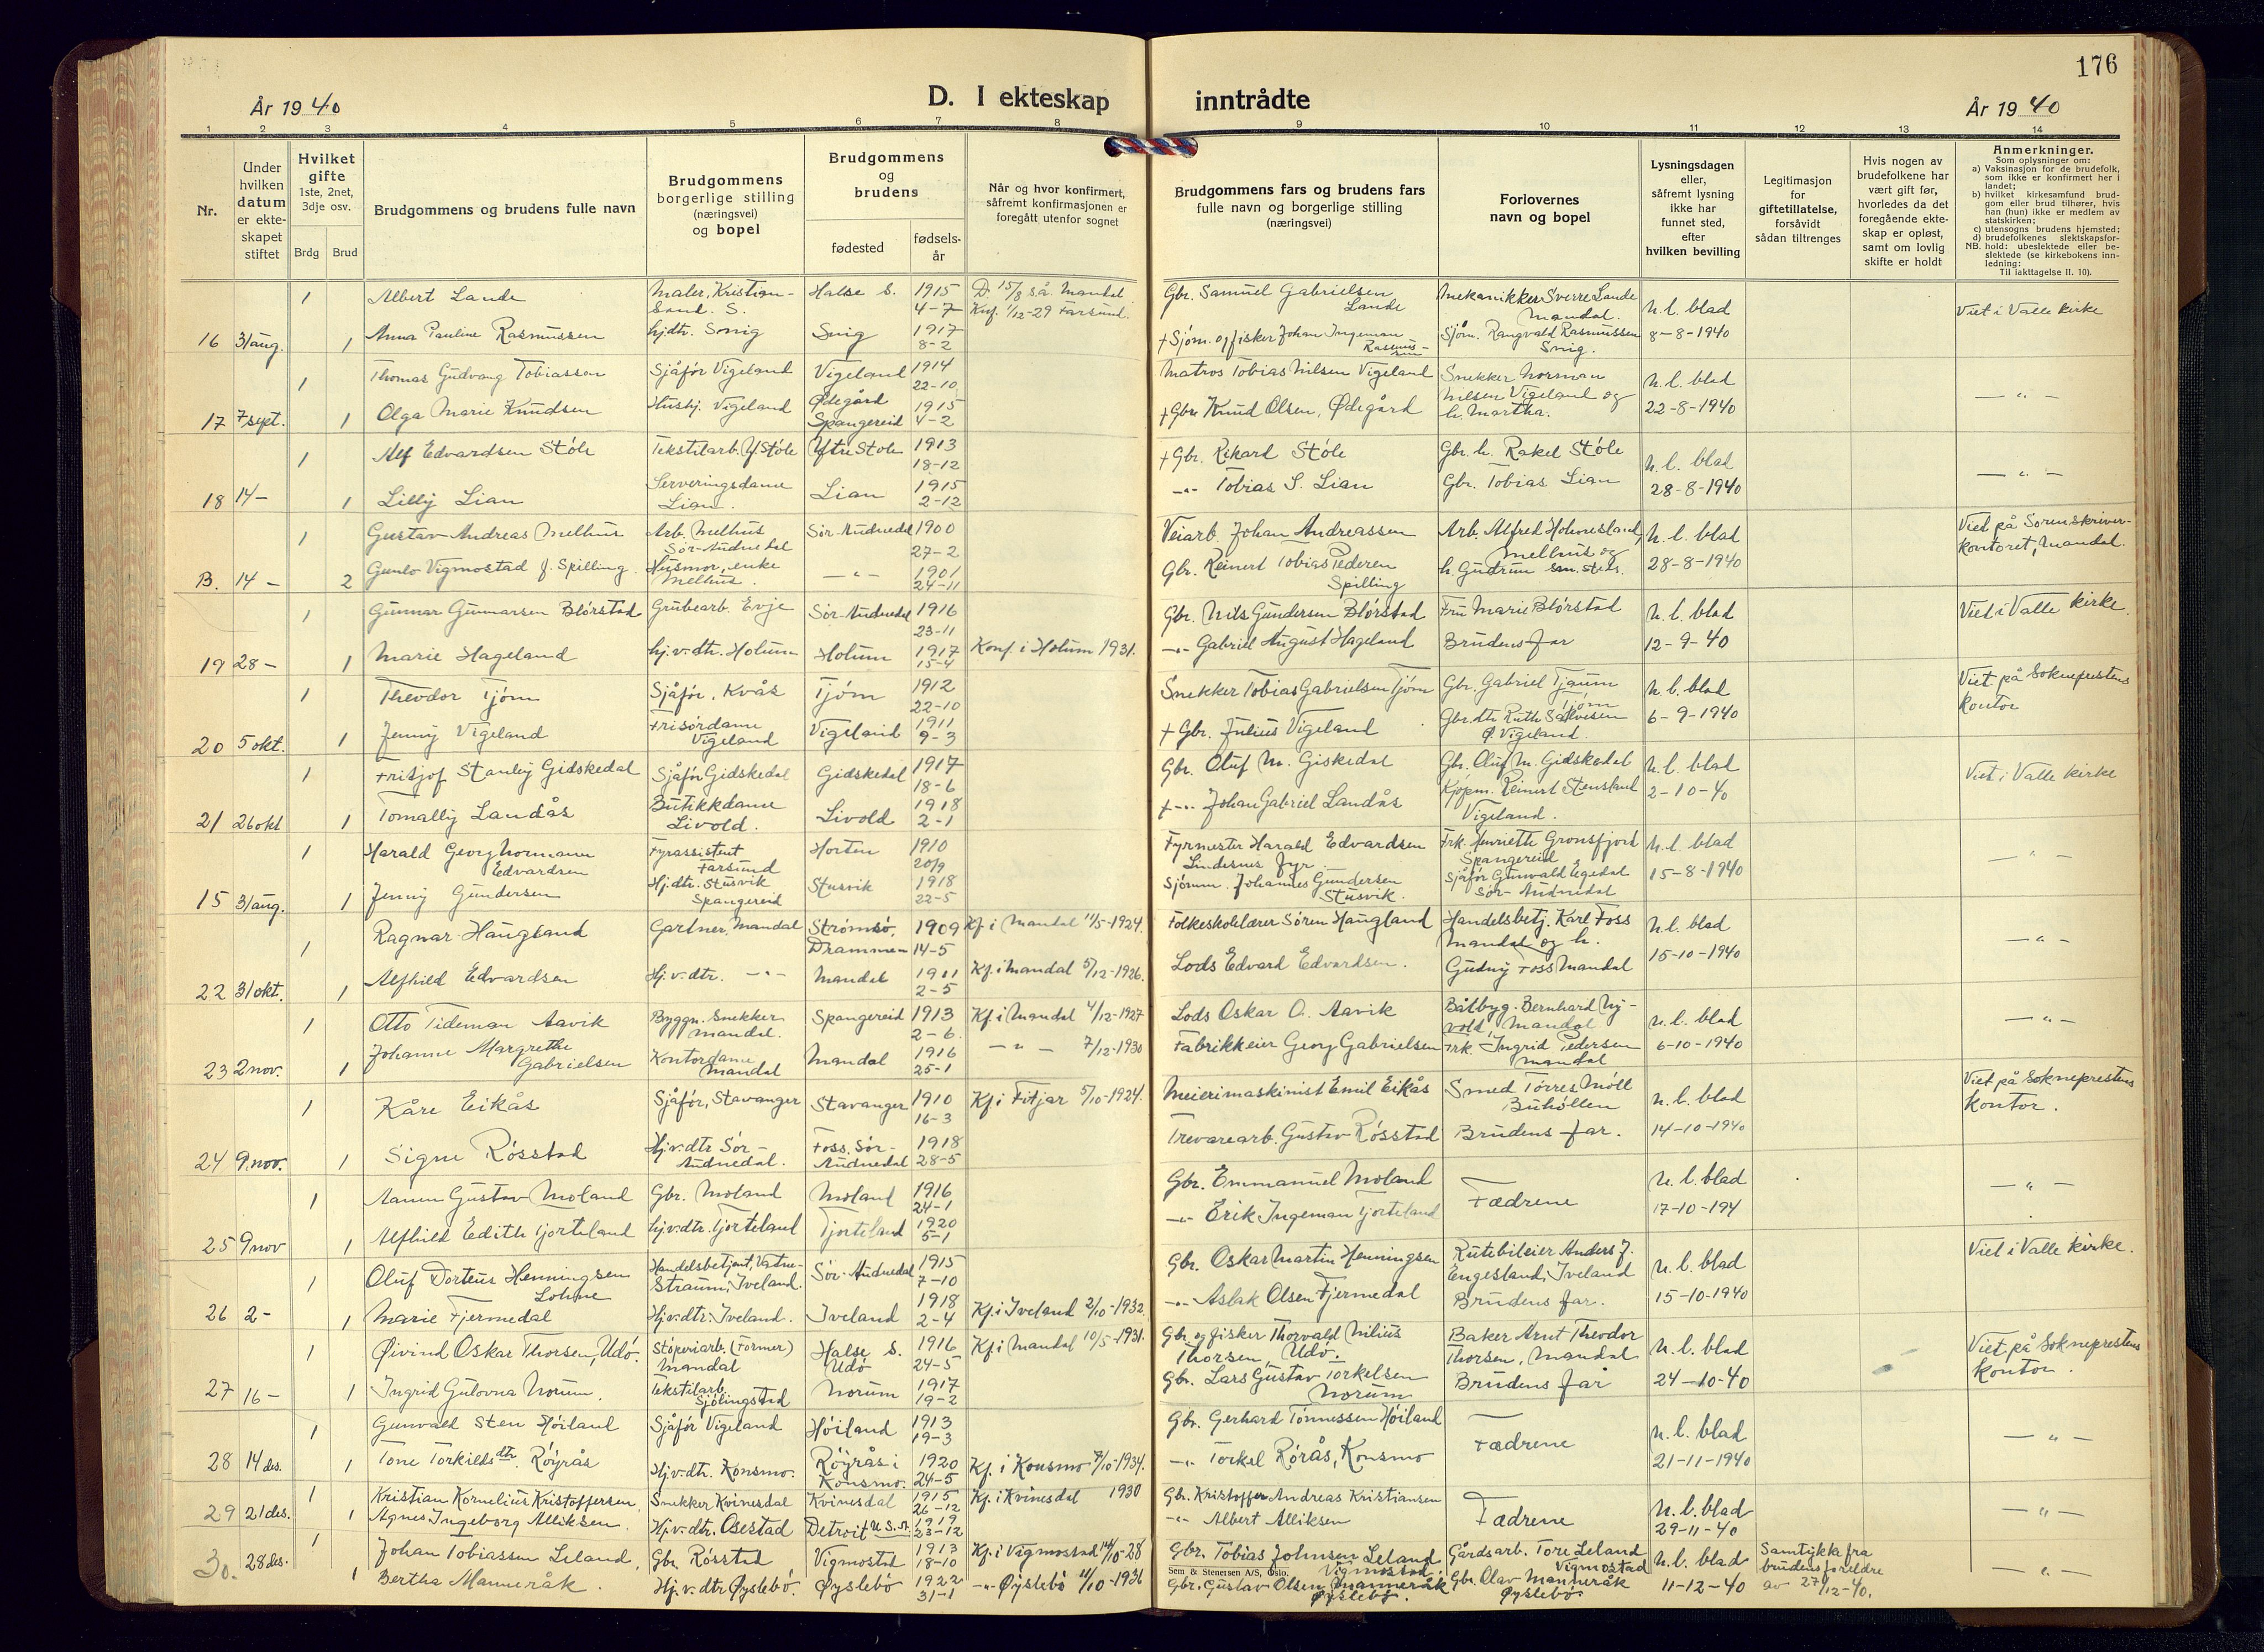 176
År 1940
D. I ekteskap
inntrådte
År 1940
1 2 3 4 5 6 7 8 9 10 11 12 13 14
Nr.
Under hvilken datum er ekteskapet stiftet
Hvilket gifte 1ste, 2net, 3dje osv.
Brdg Brud
Brudgommens og brudens fulle navn
Brudgommens borgerlige stilling (næringsvei) og bopel
Brudgommens og brudens
fødested
fødsels-år
Når og hvor konfirmert, såfremt konfirmasjonen er foregått utenfor sognet
Brudgommens fars og brudens fars fulle navn og borgerlige stilling (næringsvei)
Forlovernes navn og bopel
Lysningsdagen eller, såfremt lysning ikke har funnet sted, efter hvilken bevilling
Legitimasjon for giftetillatelse, forsåvidt sådan tiltrenges
Hvis nogen av brudefolkene har vært gift før, hvorledes da det foregående ekteskap er opløst, samt om lovlig skifte er holdt
Anmerkninger.
Som oplysninger om:
a) Vaksinasjon for de brudefolk, som ikke er konfirmert her i landet;
b) hvilket kirkesamfund brudgom eller brud tilhører, hvis han (hun) ikke er medlem av statskirken;
c) utensogns brudens hjemsted;
d) brudefolkenes slektskapsforhold: ubeslektede eller beslektede (se kirkebokens innledning:
NB.
Til iakttagelse II. 10).
1 Albert Lande Maler, Kristiansand. S. Halse s. 1915 4-7 D. 15/8 s.å. Mandal Gbr. Samuel Gabrielsen Lande Mekanikker Sverre Lande Mandal. N.l. blad Viet i Valle kirke
16 31 aug. 1 Anna Pauline Rasmussen hj.dtr. Snig Snig 1917 8-2 Knf. 1/12-29 Farsund. + Sjøm. og fisker Johan Ingeman Rasmussen Sjøm. Rangvald Rasmussen Snig. 8-8-1940
1 Thomas Gudvang Tobiassen Sjåfør Vigeland Vigeland 1914 22-10 Matros Tobias Nilsen Vigeland Snekker Norman Nilsen Vigeland og N.l. blad — " —
17 7 sept. 1 Olga Marie Knudsen Hushj. Vigeland Ødegård Spangereid 1915 4-2 + Gbr. Knud Olsen, Ødegård h. Martha. 22-8-1940
1 Alf Edvardsen Støle Tekstilarb. Y. Støle Ytre Støle 1913 18-12 + Gbr. Rikard Støle Gbr. h. Rakel Støle N.l. blad — " —
18 14- 1 Lilly Lian Serveringsdame Lian. Lian 1915 2-12 —"— Tobias S. Lian Gbr. Tobias Lian 28-8-1940
1 Gustav Andreas Melhus Arb. Melhus Sør-Audnedal Sør-Audnedal 1900 27-2 Veiarb. Johan Andreassen Arb. Alfred Holmesland, Melhus og N.l. blad Viet på Sorenskriverkontoret, Mandal.
B. 14- 2 Gunlo Vigmostad f. Spilling. Husmor, enke Melhus. —"— 1901 24-11 Gbr. Reinert Tobias Pedersen Spilling h. Gudrun sm. steds. 28-8-1940
1 Gunnar Gunnarsen Blørstad Grubearb. Evje Sør-Audnedal 1916 23-11 Gbr. Nils Gundersen Blørstad Fru Marie Blørstad N.l. blad Viet i Valle kirke.
19 28- 1 Marie Hageland hj.v.dtr. Holum Holum 1917 15-4 Konf. i Holum 1931. —"— Gabriel August Hageland Brudens far 12-9-40
1 Theodor Tjøm Sjåfør. Kvås Tjøm 1912 22-10 Snekker Tobias Gabrielsen Tjøm Gbr. Gabriel Tjøm N.l. blad Viet på Sokneprestens kontor
20 5 okt. 1 Jenny Vigeland Frisørdame Vigeland Vigeland 1911 9-3 + Gbr. Julius Vigeland Gbr.dtr. Ruth Salvesen Ø. Vigeland. 6-9-1940
1 Fritjof Stanley Gidskedal Sjåfør Gidskedal Gidskedal 1917 18-6 Gbr. Oluf M. Giskedal Gbr. Oluf M. Gidskedal N.l. blad Viet i Valle kirke
21 26 okt 1 Tomally Landås Butikkdame Livold. Livold 1918 2-1 + —"— Johan Gabriel Landås Kjøpm. Reinert Stensland Vigeland. 2-10-40
1 Harald Georg Normann Edvardsen Fyrassistent Farsund Horten 1910 20/9 Fyrmester Harald Edvardsen Lindesnes fyr. Frk. Henriette Gronsfjord Spangereid N.l. blad — " —
15 31 aug. 1 Jenny Gundersen Hj.dtr. Stusvik Spangereid Stusvik 1918 22-5 Sjømm. Johannes Gundersen Stusvik. Sjåfør Gunvald Egedal Sør-Audnedal 15-8-1940
1 Ragnar Haugland Gartner, Mandal Strømsø, Drammen 1909 14-5 Kf. i Mandal 11/5-1924. Folkeskolelærer Søren Haugland Handelsbetj. Karl Foss Mandal og h. N.l. blad — " —
22 31 okt. 1 Alfhild Edvardsen Hj.v.dtr. —"— Mandal 1911 2-5 Kf. i Mandal 5/12-1926. Lods Edvard Edvardsen. Gudny Foss Mandal 15-10-1940
1 Otto Tideman Aavik Byggn. Snekker Mandal. Spangereid 1913 2-6 Kf. i Mandal 4/12-1927 Lods Oskar O. Aavik Båtbyg. Bernhard Nyvold, Mandal N.l. blad — " —
23 2 nov. 1 Johanne Margrethe Gabrielsen Kontordame Mandal Mandal 1916 25-1 — " — 7/12-1930 Fabrikkeier Georg Gabrielsen Frk. Ingrid Pedersen Mandal 6-10-1940
1 Kåre Eikås Sjåfør, Stavanger Stavanger 1910 16-3 Kf. i Fitjar 5/10-1924. Meierimaskinist Emil Eikås Smed Tørres Møll Buhøllen N.l. blad Viet på Sokneprestens kontor.
24 9. nov. 1 Signe Røsstad Hj.v.dtr Sør-Audnedal. Foss. Sør-Audnedal 1918 28-5 Trevarearb. Gustav Røsstad Brudens far. 14-10-1940
1 Aanen Gustav Moland Gbr. Moland Moland 1916 24-1 Gbr. Emmanuel Moland Fædrene N.l. blad — " —
25 9 nov 1 Alfhild Edith Tjorteland hj.v.dtr. Tjorteland Tjorteland 1920 5-1 —"— Erik Ingeman Tjorteland 17-10-194
1 Oluf Dorteus Henningsen Lohne Handelsbetjent, Vatnestraum, Iveland. Sør-Audnedal 1915 7-10 Gbr. Oskar Martin Henningsen Rutebileier Anders J. Engesland, Iveland N.l. blad Viet i Valle kirke.
26 2- 1 Marie Fjermedal Hj.v.dtr. Iveland. Iveland 1918 2-4 Kf. i Iveland 2/10-1932. —"— Aslak Olsen Fjermedal Brudens far. 15-10-1940
1 Øivind Oskar Thorsen, Udø. Støperiarb. (Former) Mandal Halse s. Udø 1916 24-5 Kf. i Mandal 10/5-1931. Gbr. og fisker Thorvald Nilius Thorsen, Udø. Baker Arnt Theodor Thorsen, Mandal N.l. blad Viet på Sokneprestens kontor.
27 16- 1 Ingrid Gulovna Norum. Tekstilarb. Sjølingstad Norum 1917 19-2 Gbr. Lars Gustav Torkelsen Norum Brudens far 24-10-40
1 Gunvald Sten Høiland Sjåfør Vigeland Høiland 1913 19-3 Gbr. Gerhard Tønnessen Høiland Fædrene N.l. blad — " —
28 14 des. 1 Tone Torkildsdtr. Røyrås Hj.v.dtr. Konsmo. Røyrås i Konsmo. 1920 24-5 Kf. i Konsmo 7/10-1934. —"— Torkel Rørås, Konsmo 21-11-1940
1 Kristian Kornelius Kristoffersen. Snekker Kvinesdal Kvinesdal 1915 26-12 Kf. i Kvinesdal 1930 Gbr. Kristoffer Andreas Kristiansen Fædrene N.l. blad — " —
29 21 des. 1 Agnes Ingeborg Alliksen. Hj.v.dtr. Osestad Detroit U.S.A. 1919 23-12 —"— Albert Alliksen 29-11-40
1 Johan Tobiassen Leland. Gbr. Røsstad Vigmostad 1913 18-10 Kf. i Vigmostad 14/10-28 Gbr. Tobias Johnsen Leland Vigmostad. Gårdsarb. Tore Leland Vigmostad N.l. blad Samtykke fra brudens foreldre av 27/12-40. — " —
30. 28 des. 1 Bertha Manneråk. Hj.v.dtr Øyslebø. Øyslebø 1922 31-1 —"— Øyslebø 11/10-1936 Gbr. Gustav Olsen Manneråk Øyslebø. Gbr. Olav Manneråk Øyslebø. 11-12-40
Sem & Stenersen A/S, Oslo.